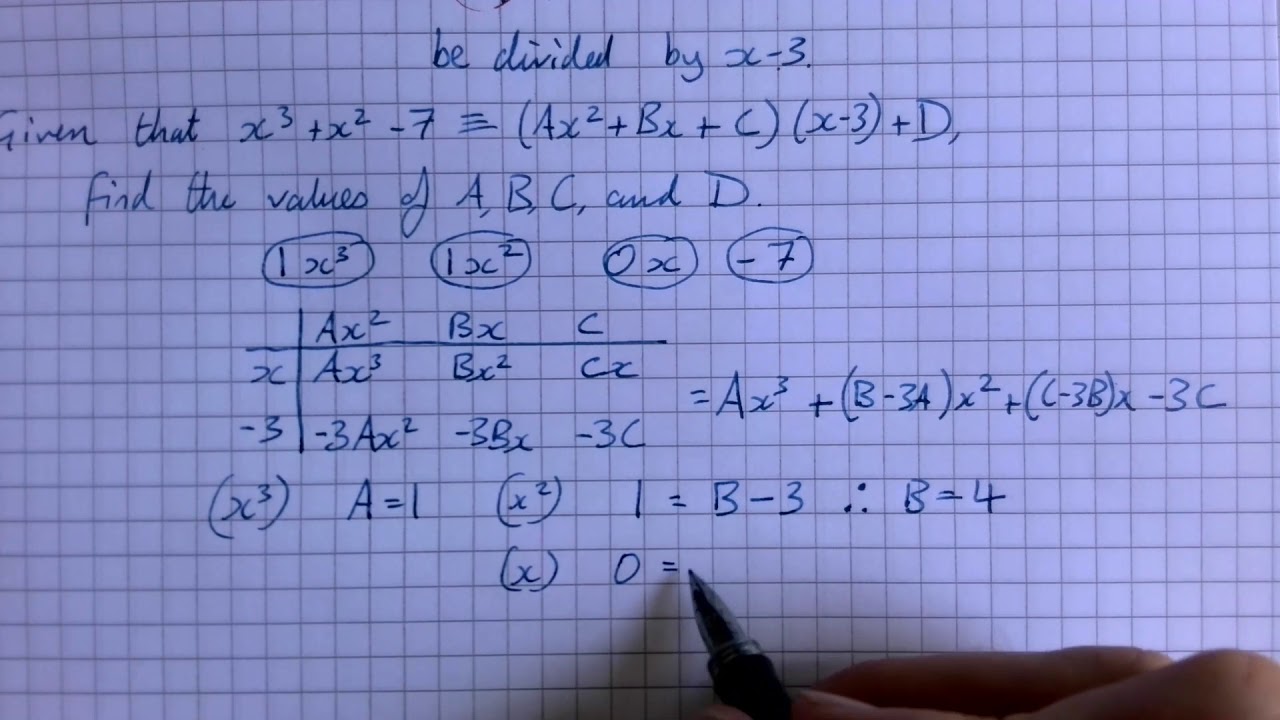 be divided by x-3.
Given that x³+x²-7 ≡ (Ax²+Bx+C)(x-3)+D,
find the values of A, B, C, and D.
1x³ 1x² 0x -7
Ax² Bx C
x Ax³ Bx² Cx
= Ax³ + (B-3A)x² + (C-3B)x - 3C
-3 -3Ax² -3Bx -3C
(x³) A=1 (x²) 1 = B-3 ∴ B=4
(x) 0 =